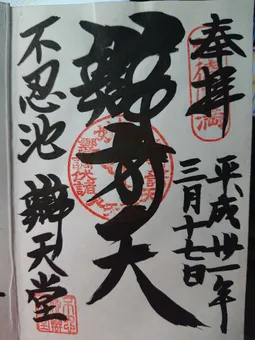 奉拝
平成廿一年
三月十七日
辯才天
不忍池 辯天堂